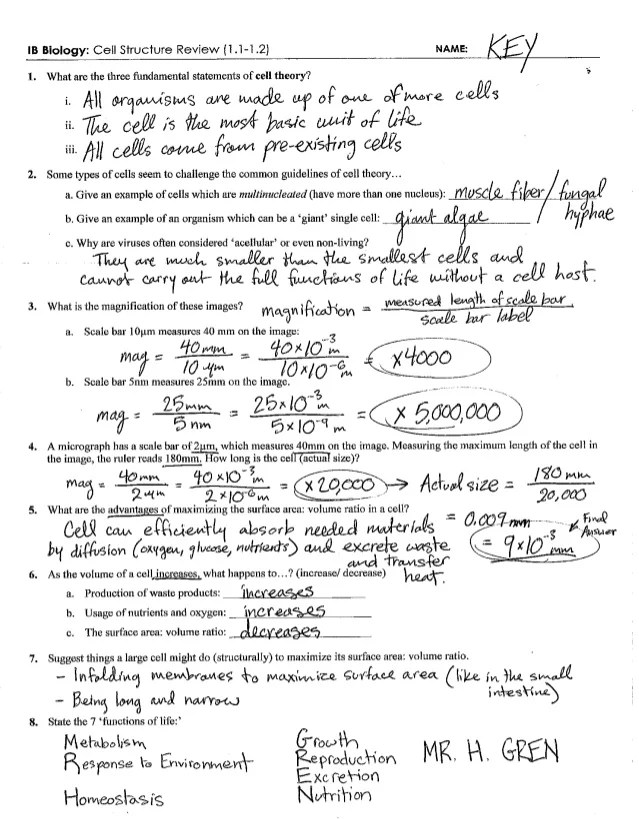 IB Biology: Cell Structure Review (1.1-1.2) NAME: KEY
1. What are the three fundamental statements of cell theory?
i. All organisms are made up of one or more cells
ii. The cell is the most basic unit of life
iii. All cells come from pre-existing cells
2. Some types of cells seem to challenge the common guidelines of cell theory…
a. Give an example of cells which are multinucleated (have more than one nucleus): muscle fiber/ fungal hyphae
b. Give an example of an organism which can be a 'giant' single cell: giant algae
c. Why are viruses often considered 'acellular' or even non-living?
They are much smaller than the smallest cells and
cannot carry out the full functions of life without a cell host.
3. What is the magnification of these images? magnification = measured length of scale bar / scale bar label
a. Scale bar 10μm measures 40 mm on the image:
mag = 40mm / 10 μm = 40×10⁻³ m / 10×10⁻⁶ m = ×4000
b. Scale bar 5nm measures 25mm on the image.
mag = 25mm / 5 nm = 25×10⁻³ m / 5×10⁻⁹ m = × 5,000,000
4. A micrograph has a scale bar of 2μm, which measures 40mm on the image. Measuring the maximum length of the cell in
the image, the ruler reads 180mm. How long is the cell (actual size)?
mag = 40mm / 2μm = 40×10⁻³ m / 2×10⁻⁶ m = ×20,000 → Actual size = 180 mm / 20,000
= 0.009 mm
= 9×10⁻³ mm Final Answer
5. What are the advantages of maximizing the surface area: volume ratio in a cell?
Cell can efficiently absorb needed materials
by diffusion (oxygen, glucose, nutrients) and excrete waste
and transfer heat.
6. As the volume of a cell increases, what happens to…? (increase/ decrease)
a. Production of waste products: increases
b. Usage of nutrients and oxygen: increases
c. The surface area: volume ratio: decreases
7. Suggest things a large cell might do (structurally) to maximize its surface area: volume ratio.
- Infolding membranes to maximize surface area (like in the small intestine)
- Being long and narrow
8. State the 7 'functions of life:'
Metabolism
Response to Environment
Homeostasis
Growth
Reproduction
Excretion
Nutrition
MR. H. GREN